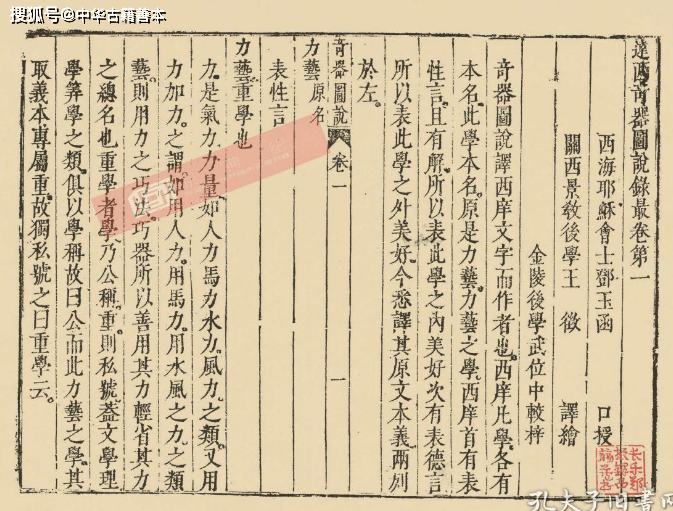 搜狐号@中华古籍善本
遠西奇器圖說錄最卷第一
西海耶穌會士鄧玉函 口授
關西景敎後學王 徵 譯繪
金陵後學武位中較梓
奇器圖說譯西庠文字而作者也西庠凡學各有
本名此學本名原是力藝力藝之學西庠首有表
性言且有解所以表此學之內美好次有表德言
所以表此學之外美好今悉譯其原文本義兩列
於左
奇器圖說 卷一 一
力藝原名
表性言
力藝重學也
力是氣力力量如人力馬力水力風力之類又用
力加力之謂如用人力用馬力用水風之力之類
藝則用力之巧法巧器所以善用其力輕省其力
之總名也重學者學乃公稱重則私號蓋文學理
學筭學之類俱以學稱故曰公而此力藝之學其
取義本專屬重故獨私號之曰重學云
长乐郑
振铎西
諦藏书
孔夫子旧书网